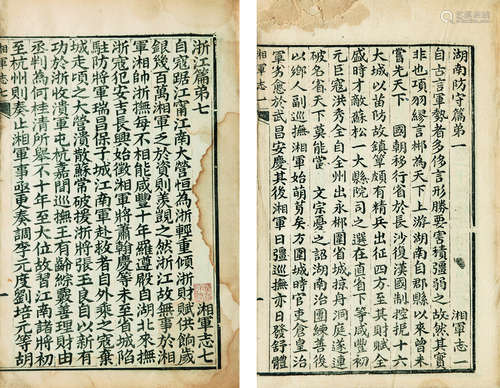 湖南防守篇弟一 湘軍志一
自古言軍勢者多侈言形勝要害積彊弱之故然其實
非也項羽繆言郴為天下上游湖南自郡縣以來曾未
嘗先天下 國朝移行省於長沙復漢國制控扼十六
大城以苗防故鎮筸頗有精兵出征四方至其財賦全
盛時才敵蘇松一大縣院司之選在直省下等咸豐初
元巨寇洪秀全自全州出永郴圍省城掠舟洞庭遂連
破名省天下莫能當 文宗憂之詔湖南治團練善後
以鄉人副巡撫湘軍始萌芽矣方圍城時官吏倉皇治
軍劣愈於武昌安慶其後湘軍日彊巡撫亦日發舒體
湘軍志一 一
浙江篇弟七 湘軍志七
自寇踞江甯江南大營恒為浙輕重傾浙財賦供餉歲
銀幾百萬湘軍乏於資則羨觀之然浙江故無事於湘
軍湘帥浙撫每不相能咸豐十年羅遵殿自湖北來撫
浙寇犯安吉長興始徵湘軍將蕭翰慶等未至省城陷
駐防將軍瑞昌保子城江南軍赴救者自外乘之寇棄
城走項之大營潰散蘇常破援浙將張玉良自以新有
功於浙收潰軍屯杭嘉閒巡撫王有齡綜覈善理財由
丞判為何桂清所舉不十年至大位故習江南諸將初
至杭州則奏止湘軍事亟更奏調李元度劉培元等胡
湘軍志七 一